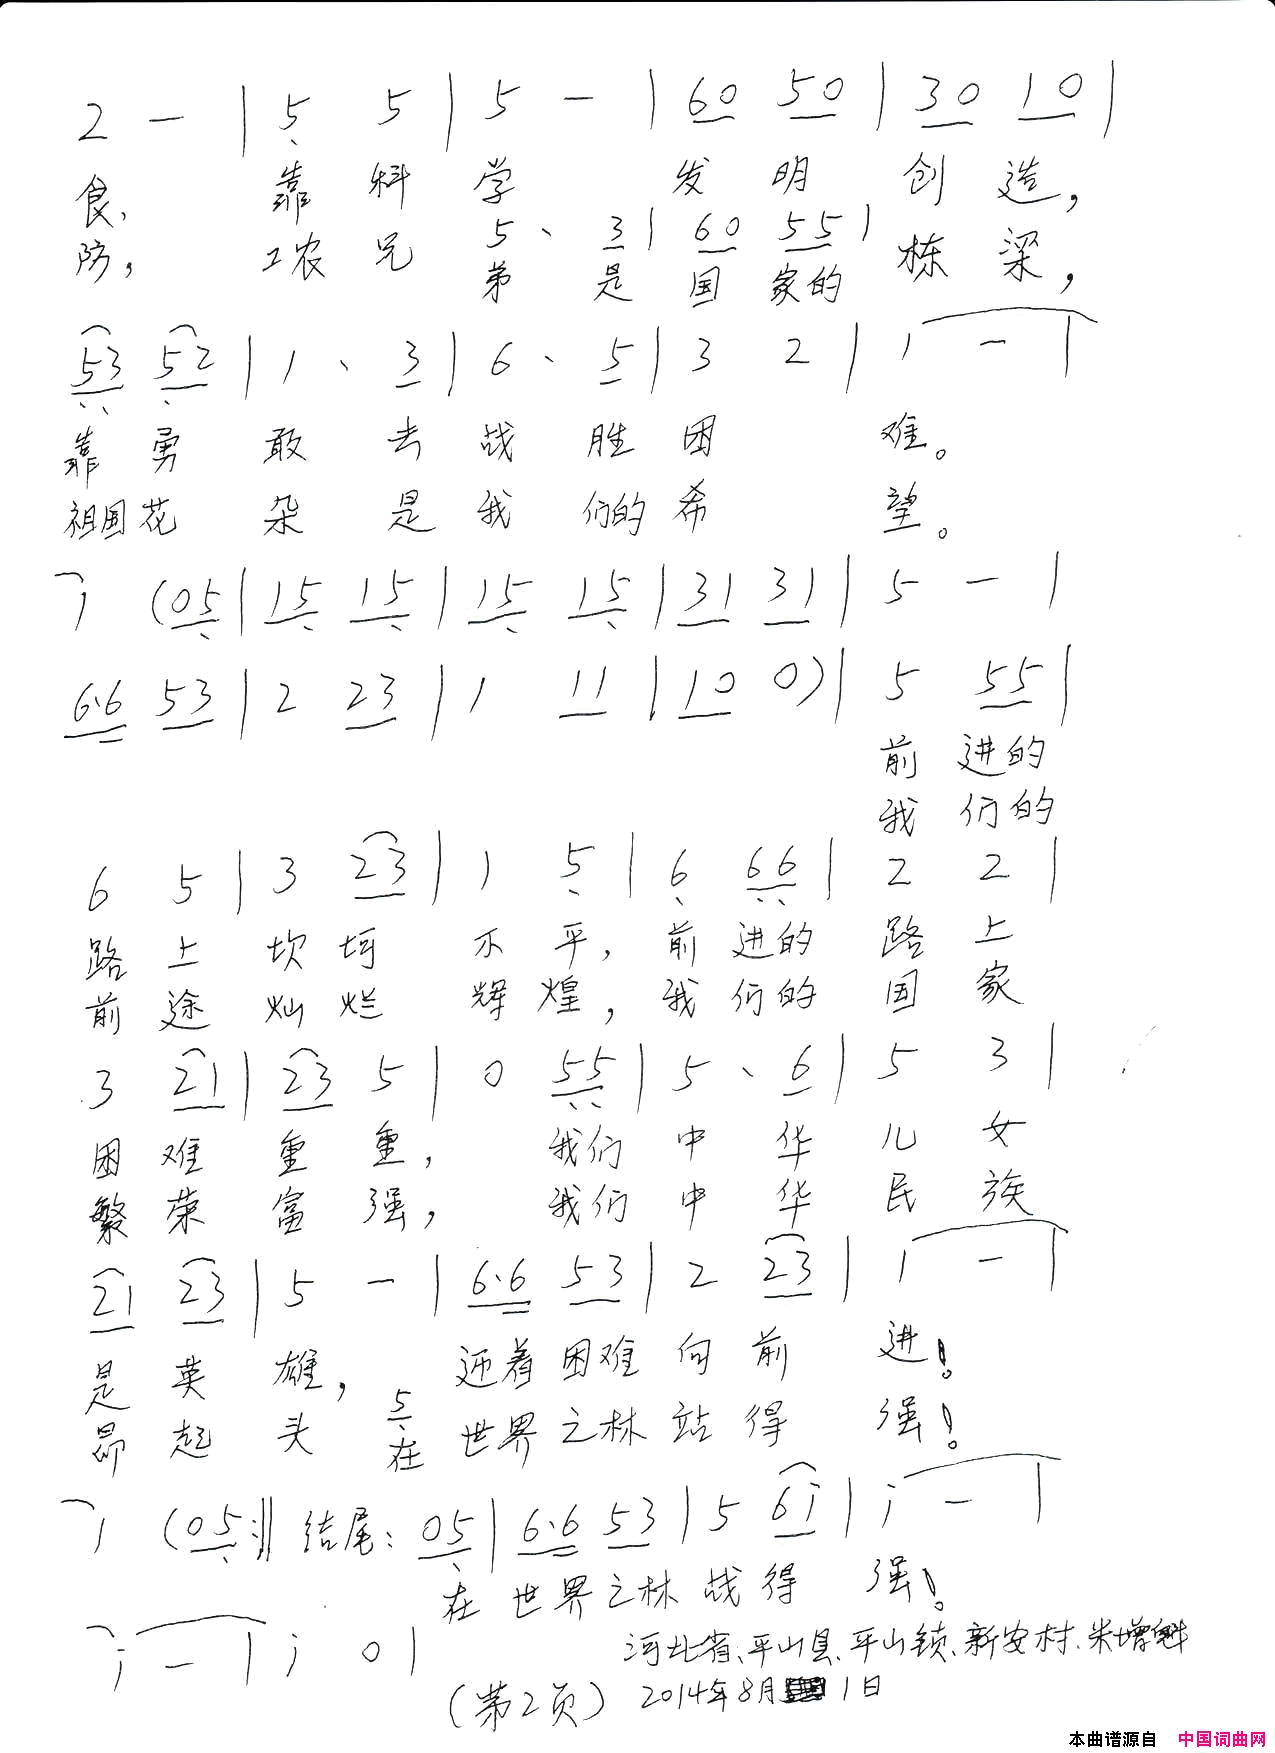 2 — | 5 5 | 5 — | 60 50 | 30 10 |
食、 靠 科 学 发 明 创 造，
5 · 3 | 60 55 |
防， 工农 兄 弟 是 国 家的 栋 梁，
53 52 | 1 · 3 | 6 · 5 | 3 2 | 1 — |
靠 勇 敢 去 战 胜 困 难。
祖国 花 朵 是 我 们的 希 望。
1 (05 | 15 15 | 15 15 | 31 31 | 5 — |
6·6 53 | 2 23 | 1 11 | 10 0) | 5 55 |
前 进的
我 们的
6 5 | 3 23 | 1 5 | 6 66 | 2 2 |
路 上 坎 坷 不 平， 前 进的 路 上
前 途 灿 烂 辉 煌， 我 们的 国 家
3 21 | 23 5 | 0 55 | 5 · 6 | 5 3 |
困 难 重 重， 我们 中 华 儿 女
繁 荣 富 强， 我们 中 华 民 族
21 23 | 5 — | 6·6 53 | 2 23 | 1 — |
是 英 雄， 迎着 困难 向 前 进！
5
昂 起 头 在 世界 之林 站 得 强！
1 (05 :‖ 结尾: 05 | 6·6 53 | 5 6i | i — |
在 世界 之林 战 得 强！
i — | i 0 |
河北省、平山县、平山镇、新安村、米增魁
(第2页) 2014年8月 1日
本曲谱源自 中国词曲网